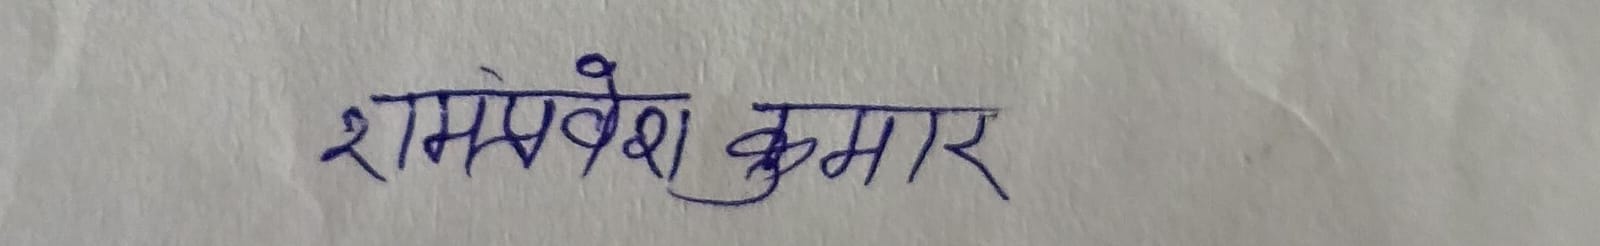 रामप्रवेश कुमार